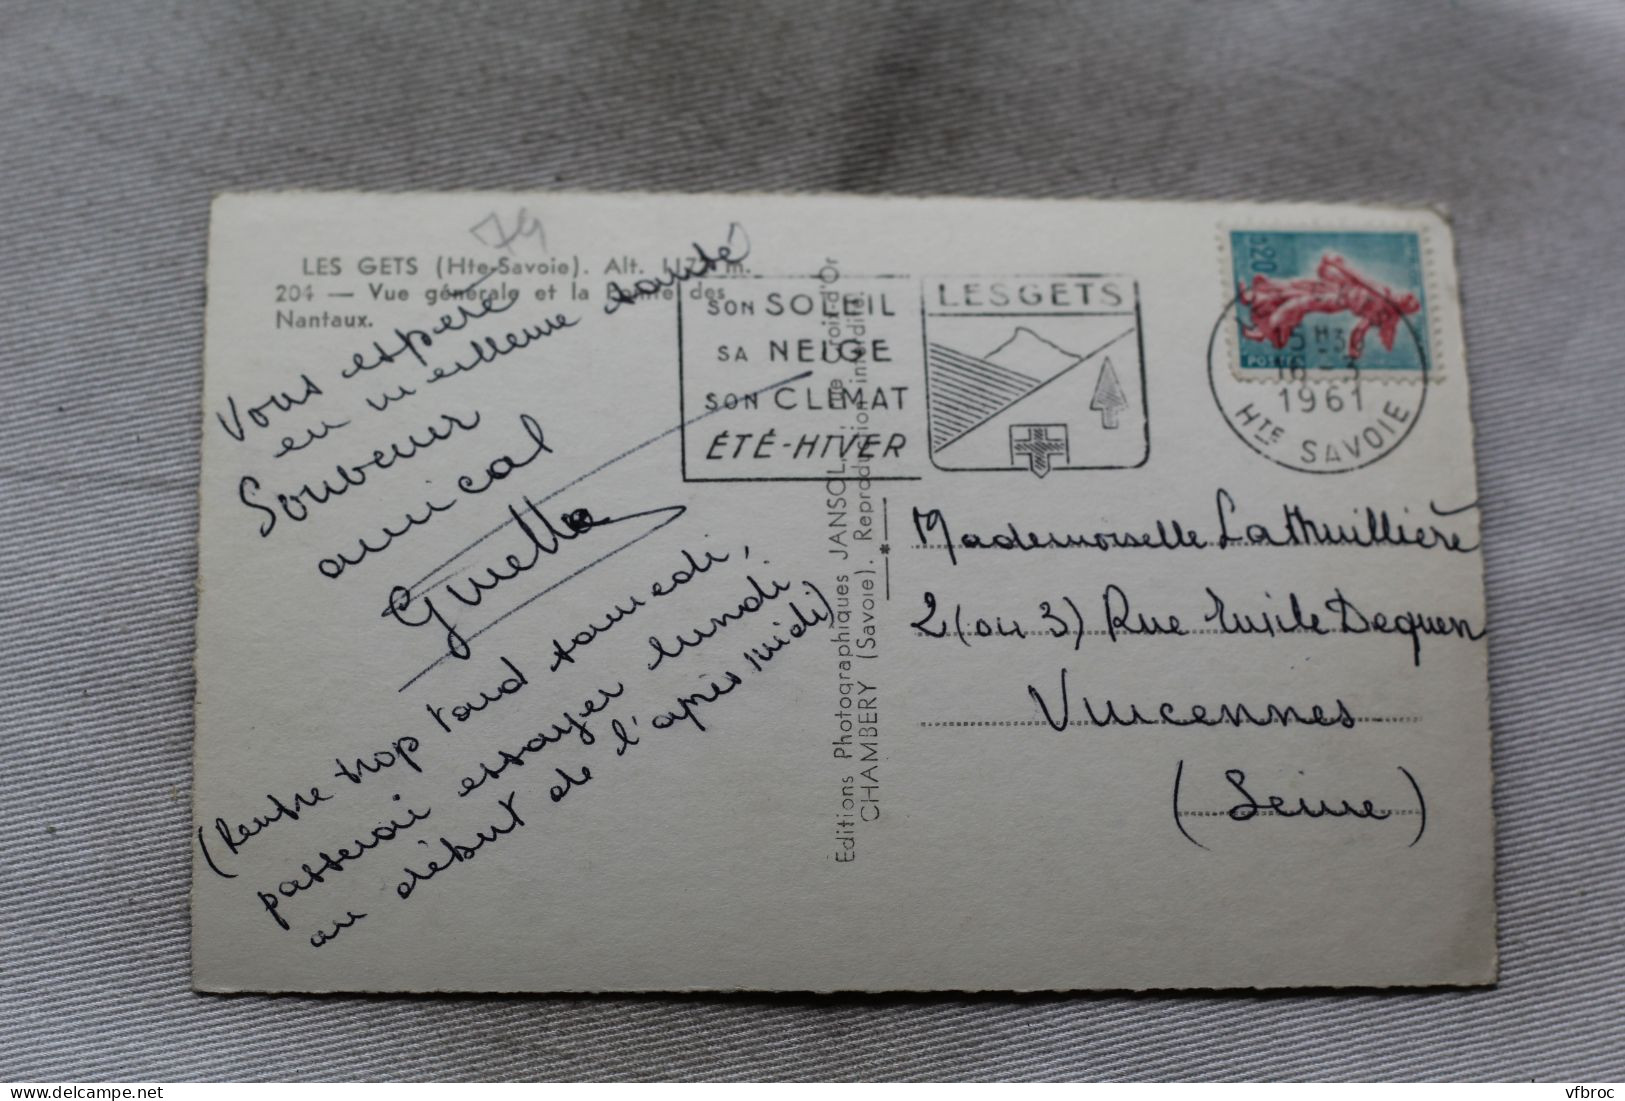 74
LES GETS (Hte-Savoie). Alt. 1172 m.
204 — Vue générale et la Pointe des
Nantaux.
Vous espère
en meilleure santé
Souvenir
amical
Ginette
(Rentre trop tard samedi,
passerai essayer lundi
au début de l'après midi)
Editions Photographiques JANSOL, Droit d'Or
CHAMBERY (Savoie). Reproduction interdite.
SON SOLEIL
SA NEIGE
SON CLIMAT
ÉTÉ-HIVER
LES GETS
0,20
POSTES
15 H 30
16 - 3
1961
HTE SAVOIE
Mademoiselle Lathuillière
2 (ou 3) Rue Emile Dequen
Vincennes
(Seine)
vfbroc